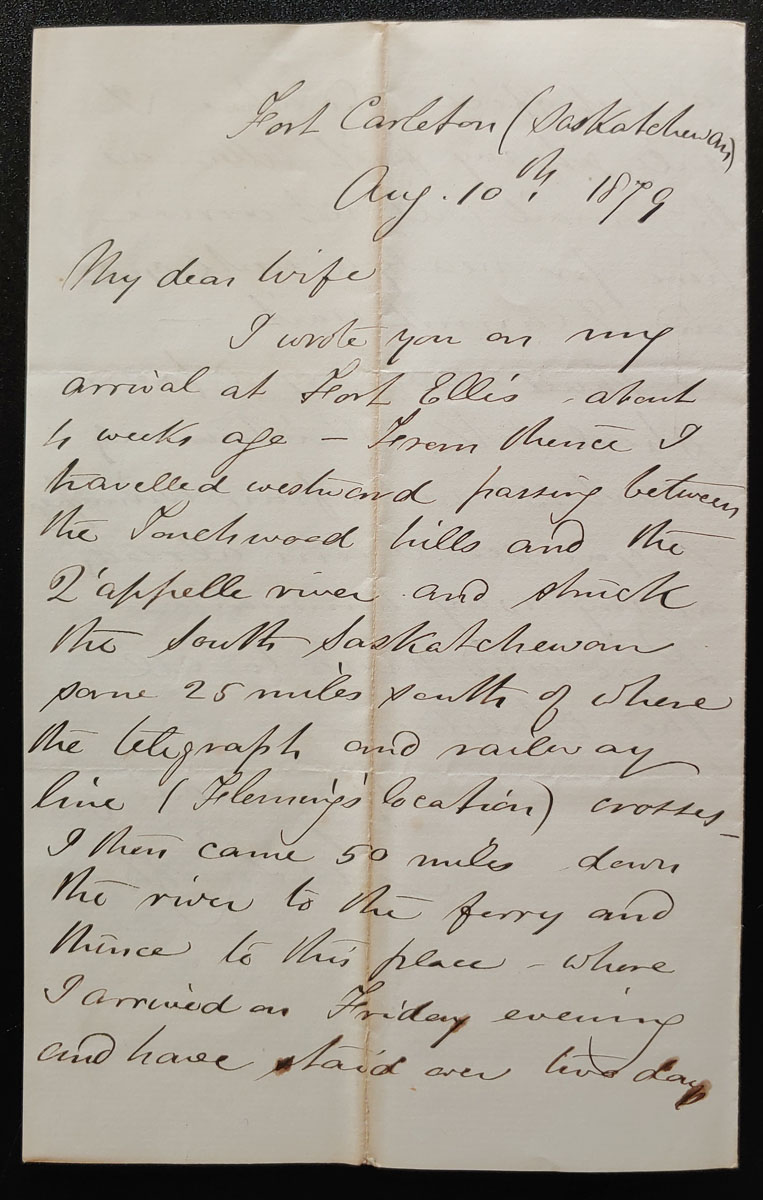 Fort Carleton (Saskatchewan)
Aug. 10th. 1879
My dear Wife
I wrote you on my
arrival at Fort Ellis - about
4 weeks ago - From thence I
travelled westward passing between
the Touchwood hills and the
Q'appelle river and struck
the South Saskatchewan
some 25 miles south of where
the telegraph and railway
line (Fleming's location) crosses -
I then came 50 miles down
the river to the ferry and
thence to this place - where
I arrived on Friday evening
and have staid over two days